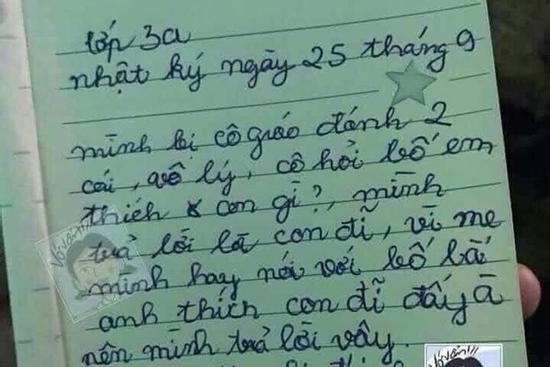 lớp 3a
nhật ký ngày 25 tháng 9
mình bị cô giáo đánh 2
cái, vô lý, cô hỏi bố em
thích con gì?, mình
trả lời là con đĩ, vì mẹ
mình hay nói với bố là
anh thích con đĩ đấy à
nên mình trả lời vậy.